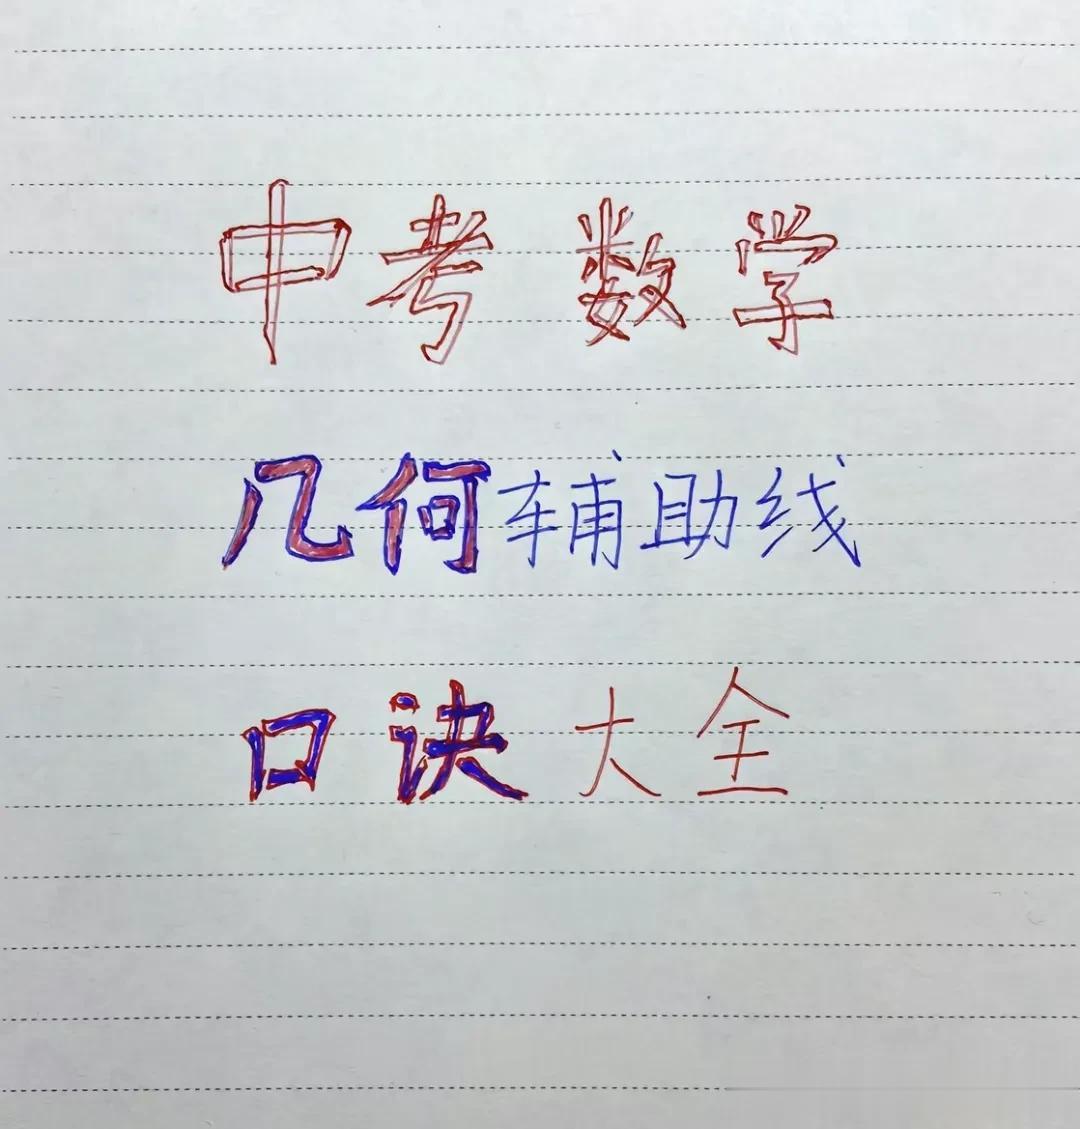 中考 数学
几何辅助线
口诀大全